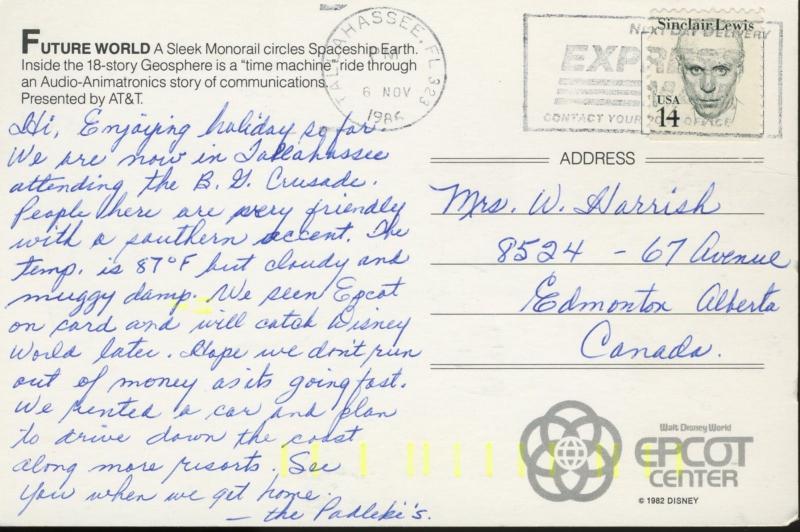 FUTURE WORLD A Sleek Monorail circles Spaceship Earth.
Inside the 18-story Geosphere is a "time machine" ride through
an Audio-Animatronics story of communications.
Presented by AT&T.
Hi, Enjoying holiday so far.
We are now in Tallahassee
attending the B. G. Crusade.
People here are very friendly
with a southern accent. The
temp. is 87°F but cloudy and
muggy damp. We seen Epcot
on card and will catch Disney
World later. Hope we don't run
out of money as its going fast.
We rented a car and plan
to drive down the coast
along more resorts. See
you when we get home.
— the Padleki's.
TALLAHASSEE, FL 323
PM
6 NOV
1986
NEXT DAY DELIVERY
EXPRESS
CONTACT YOUR POST OFFICE
Sinclair Lewis
USA
14
ADDRESS
Mrs. W. Harrish
8524 - 67 Avenue
Edmonton Alberta
Canada.
Walt Disney World
EPCOT
CENTER
© 1982 DISNEY